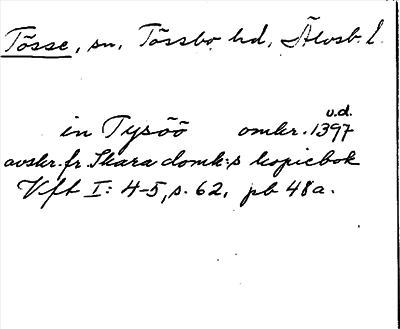 Tösse, sn, Tössbo hd, Älvsb. l.
u.d.
in Tysöö omkr. 1397
avskr. fr. Skara domk:s kopiebok
Vft I: 4-5, s. 62, pb 48a.